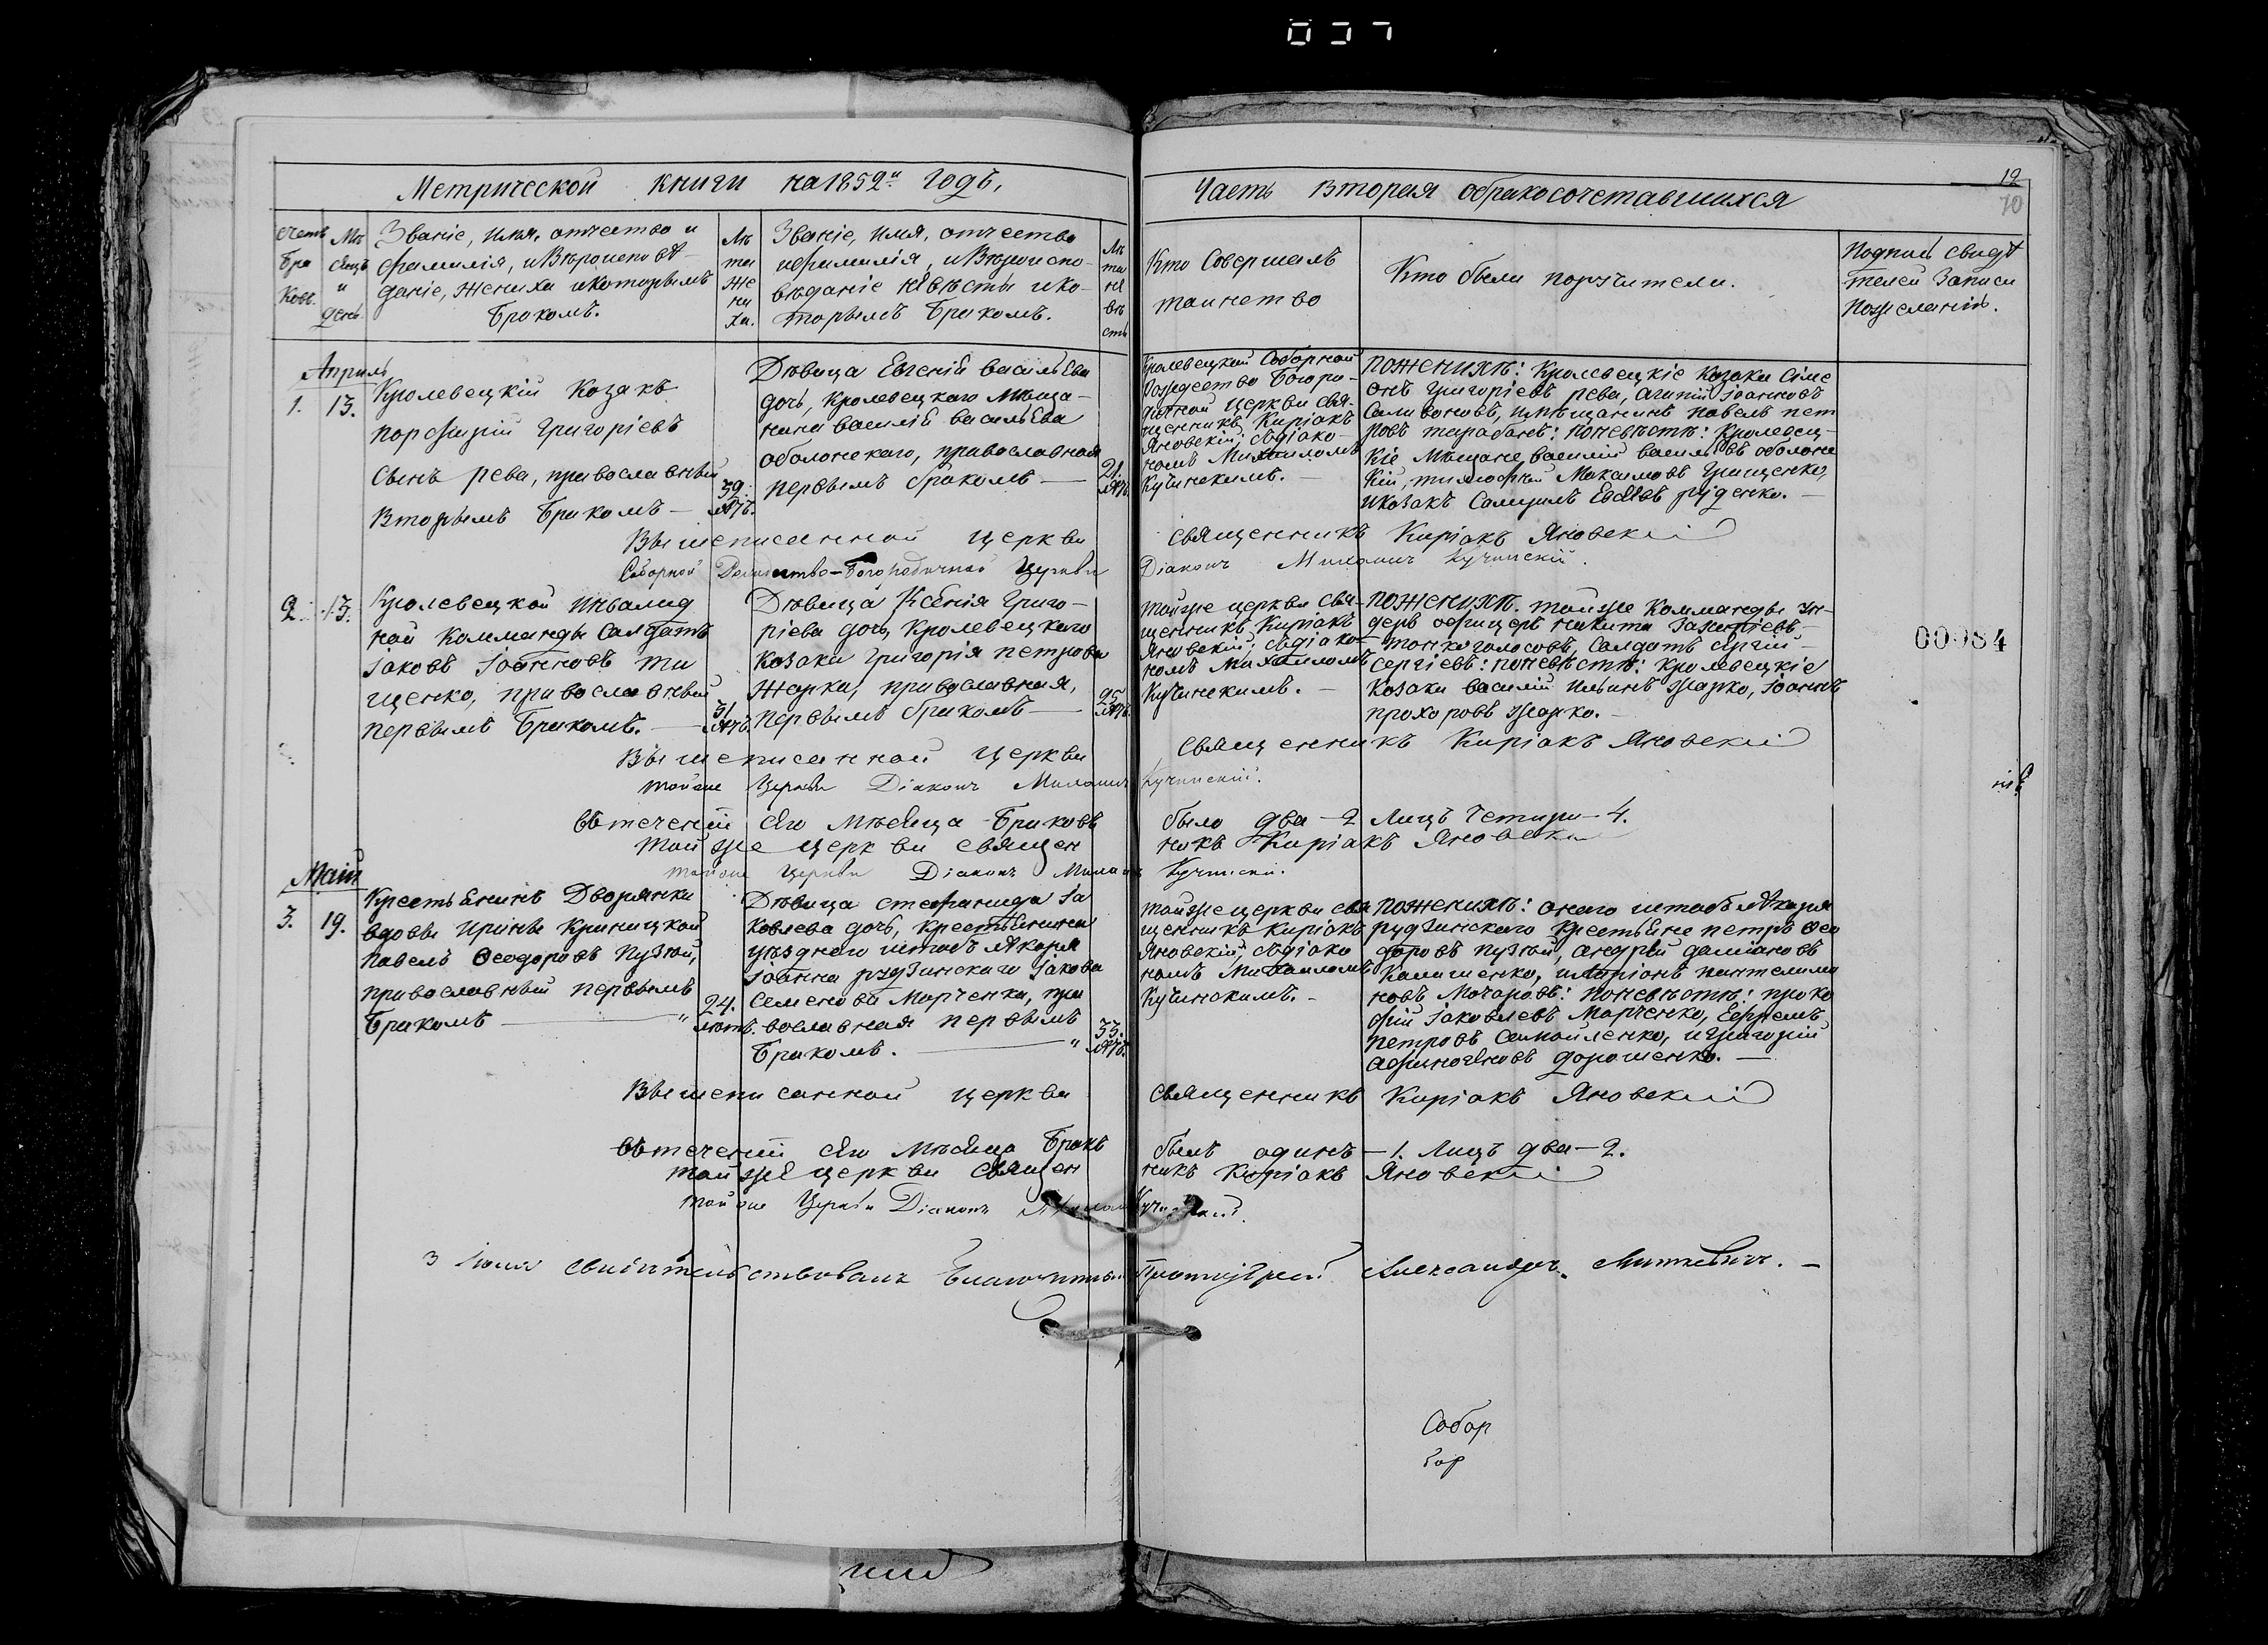 037
Метрической книги на 1852й годъ,
Часть Вторая обракосочетавшихся
12
70
счетъ браковъ.
Мѣсяцъ и день
Званіе, имя, отчество и
фамилія, и Вѣроисповѣ-
даніе, жениха и которымъ
Бракомъ.
Лѣта жениха.
Званіе, имя, отчество
и фамилія, и Вѣроиспо-
вѣданіе невѣсты и ко-
торымъ Бракомъ.
Лѣта невѣсты
Кто Совершалъ
таинство
Кто были поручители.
Подписи Свидѣ
телей Записи
По желанію.
Апрель
1. 13.
Кролевецкій Козакъ
порфирій Григоріевъ
Сынъ рева, православный
Вторымъ Бракомъ —
39. лѣтъ.
Дѣвица Евгенія васильева
дочь, кролевецкого Мѣща-
нина василія васильева
оболонского, православная
первымъ бракомъ —
21. лѣтъ
Кролевецкой Соборной
Рождество Богоро-
дичной Церкви Свя-
щенникъ Киріакъ
Яновскій, съ діако-
номъ Михаиломъ
Кучинскимъ. —
По женихѣ: Кролевецкіе Козаки Симе
онъ Григоріевъ рева, Іоанновъ
Селивоновъ, и Мѣщанинъ павелъ пет
ровъ тарабанъ: по невѣстѣ: Кролевец-
кіе Мѣщане, василій васильевъ оболонс
кій, тимофей Максимовъ Грищенко,
и козакъ Самуилъ руденко. —
Вышеписанной церкви Священникъ Киріакъ Яновскій
Соборной Рождество-Богородичной Церкви Діаконъ Михаилъ Кучинскій.
2. 13.
Кролевецкой инвалид
ной комманды Салдатъ
Іаковъ Іоанновъ ти
щенко, православный
первымъ Бракомъ. —
31 лѣтъ.
Дѣвица Ксенія Григо-
ріева дочь, Кролевецкого
Козака Григорія петрова
Жарка, православная,
первымъ бракомъ —
25 лѣтъ.
тойже церкви Свя-
щенникъ Киріакъ
Яновскій, съ діако-
номъ Михаиломъ
Кучинскимъ. —
По женихѣ. тойже Комманды Ун-
деръ офицеръ никита Захаріевъ-
тонкоголосовъ, Салдатъ Сергій-
Сергіевъ: по невѣстѣ: Кролевецкіе
Козаки василій Ильинъ Жарко, Іоаннъ
прохоровъ Жарко. —
Вышеписанной церкви Священникъ Киріакъ Яновскій
тойже Церкви Діаконъ Михаилъ Кучинскій.
00084
Въ теченіи сего мѣсяца Браковъ было два — 2 Лицъ Четыри — 4.
тойже церкви Священникъ Киріакъ Яновскій
тойже Церкви Діаконъ Михаилъ Кучинскій.
Маій
3. 19.
Крестьянинъ Дворянки
вдовы Ирины Криницкой
Павелъ Ѳеодоровъ Пузтой,
православный первымъ
Бракомъ — "
24. лѣтъ.
Дѣвица стефанида Іа
ковлева дочь, Крестьянина
уѣзднаго штабъ лѣкаря
Іоанна рудзинского Іакова
Семенова Марченка, пра
вославная первымъ
Бракомъ. — "
33. лѣтъ.
тойже церкви Свя
щенникъ Киріакъ
Яновскій, съ діако
номъ Михаиломъ
Кучинскимъ. —
По женихѣ: оного штабъ лѣкаря
рудзинского Крестьяне петръ Ѳео
доровъ пузтой, андрей даміановъ
Калашенко, и Иларіонъ пантелимо
новъ Мочаровъ: по невѣстѣ: проко
фій Іаковлевъ Марченко, Ефремъ
петровъ Самойленко, и Григорій
Афиногеновъ дорошенко. —
Вышеписанной церкви Священникъ Киріакъ Яновскій
Въ теченіи сего мѣсяца Бракъ былъ одинъ — 1. Лицъ два — 2.
тойже церкви Священникъ Киріакъ Яновскій
тойже Церкви Діаконъ Михаилъ Кучинскій.
3 Іюня Свидѣтельствовалъ Благочинный Протоіерей Александръ Миткевичъ. —
Собор
бор